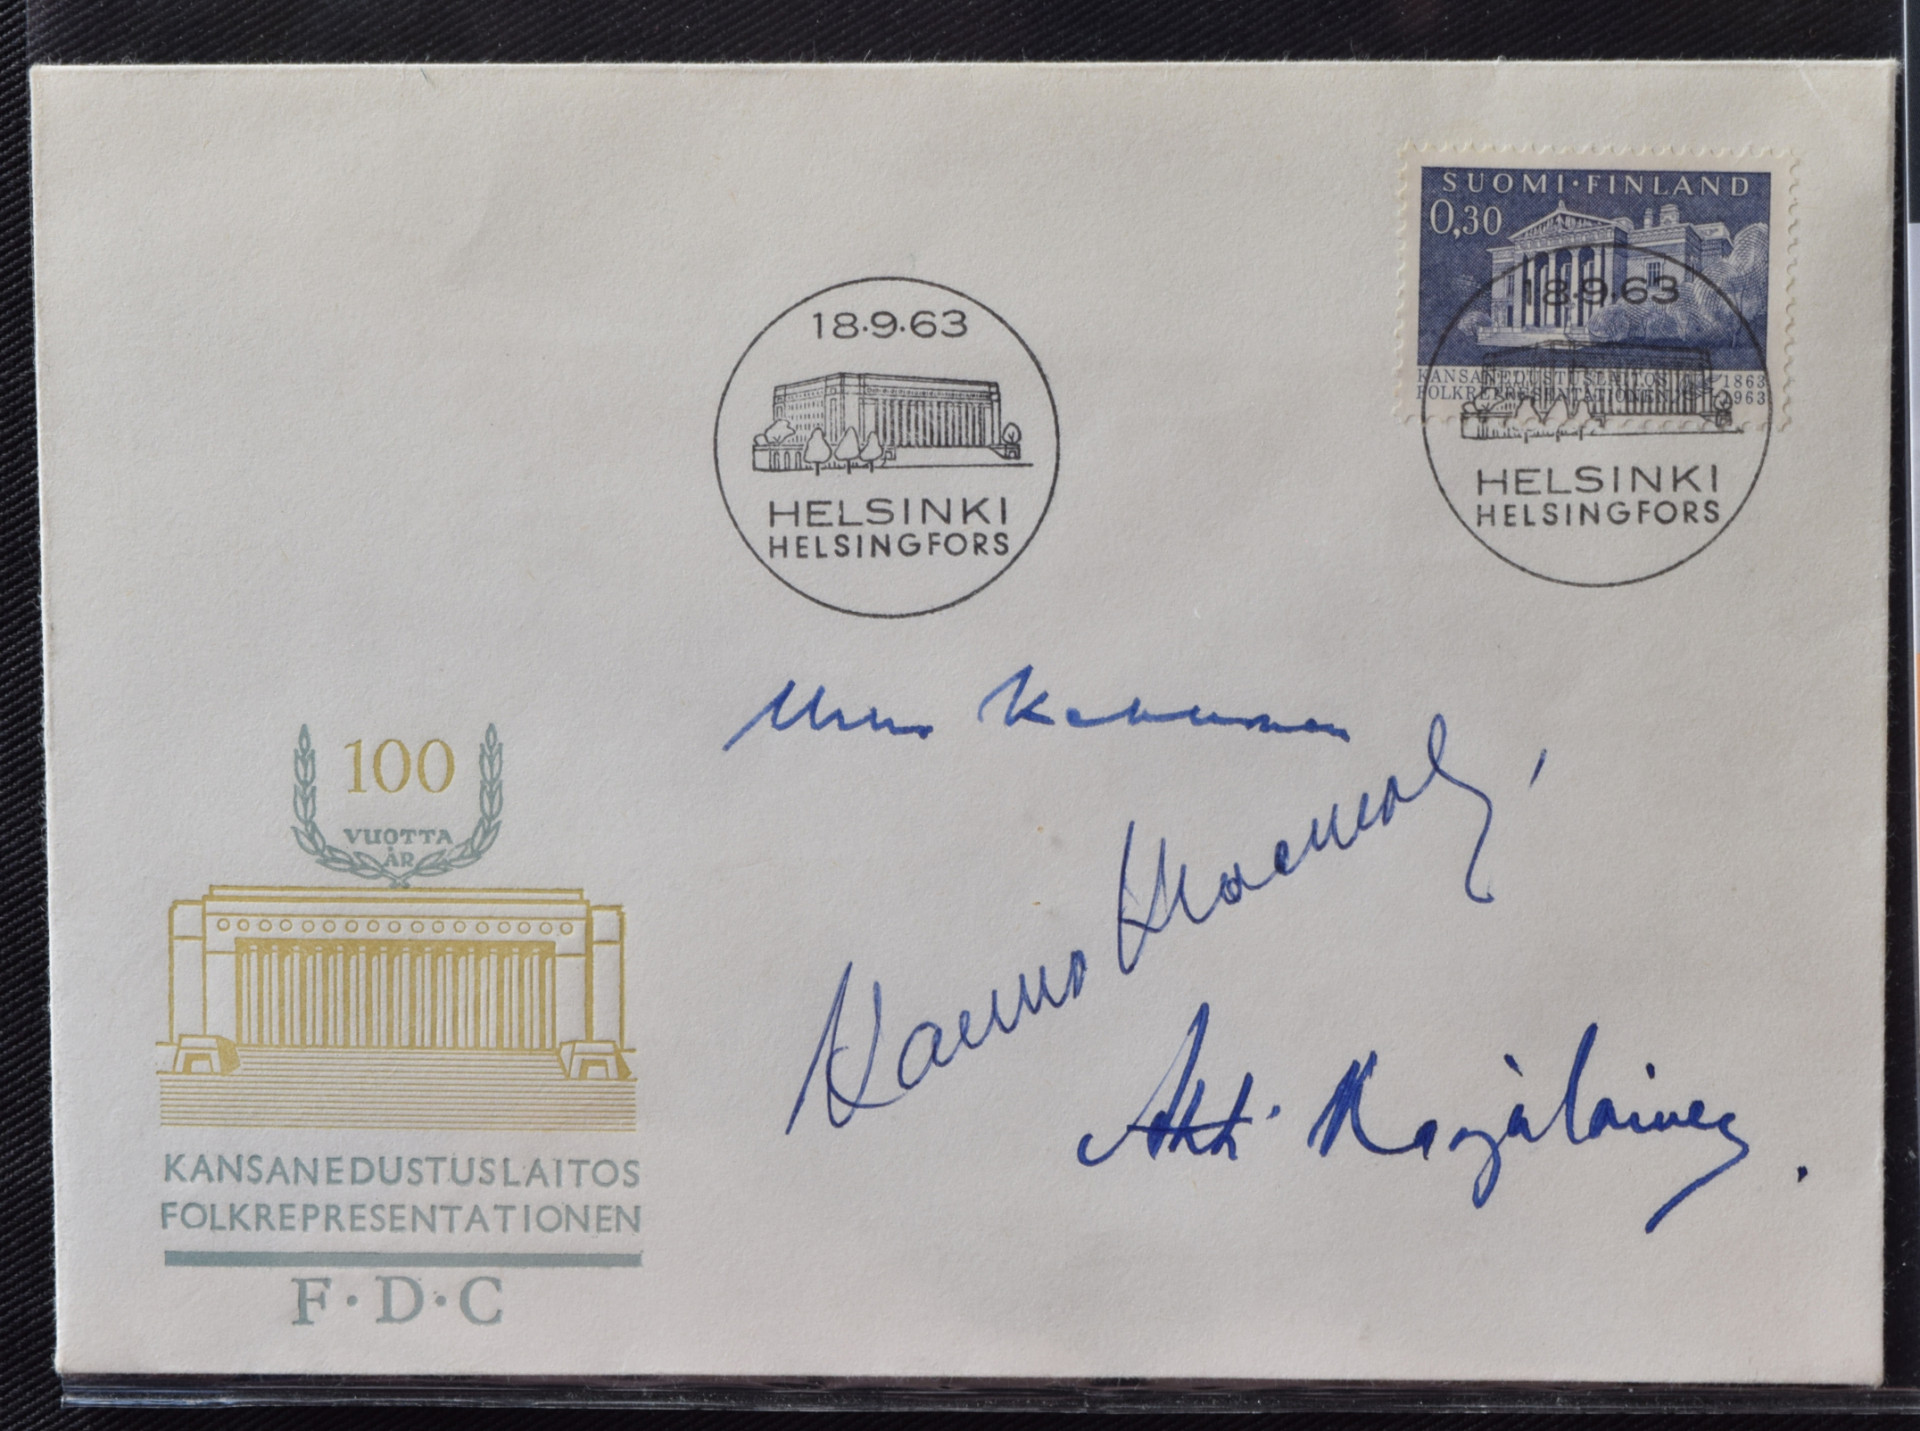 SUOMI·FINLAND
0,30
18.9.63
KANSANEDUSTUSLAITOS 1863
FOLKREPRESENTATIONEN 1963
HELSINKI
HELSINGFORS
18.9.63
HELSINKI
HELSINGFORS
Urho Kekkonen
Kauno Kleemola
Ahti Karjalainen
100
VUOTTA
ÅR
KANSANEDUSTUSLAITOS
FOLKREPRESENTATIONEN
F·D·C